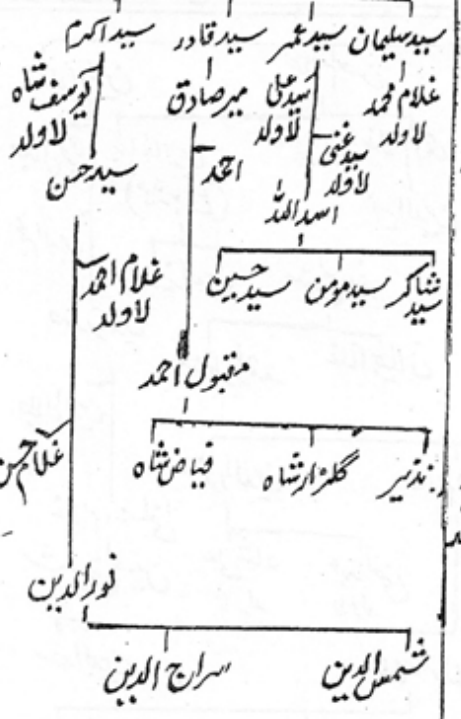 سید سلیمان سید عمر سید قادر سید اکرم
غلام محمد لاولد
سید علی لاولد
میر صادق
یوسف شاہ لاولد
سید غنی لاولد
احمد
سید حسن
اسد اللہ
سید شاکر سید مومن سید حسین
غلام احمد لاولد
مقبول احمد
نذیر گلزار شاہ فیاض شاہ
غلام حسن
نور الدین
شمس الدین سراج الدین